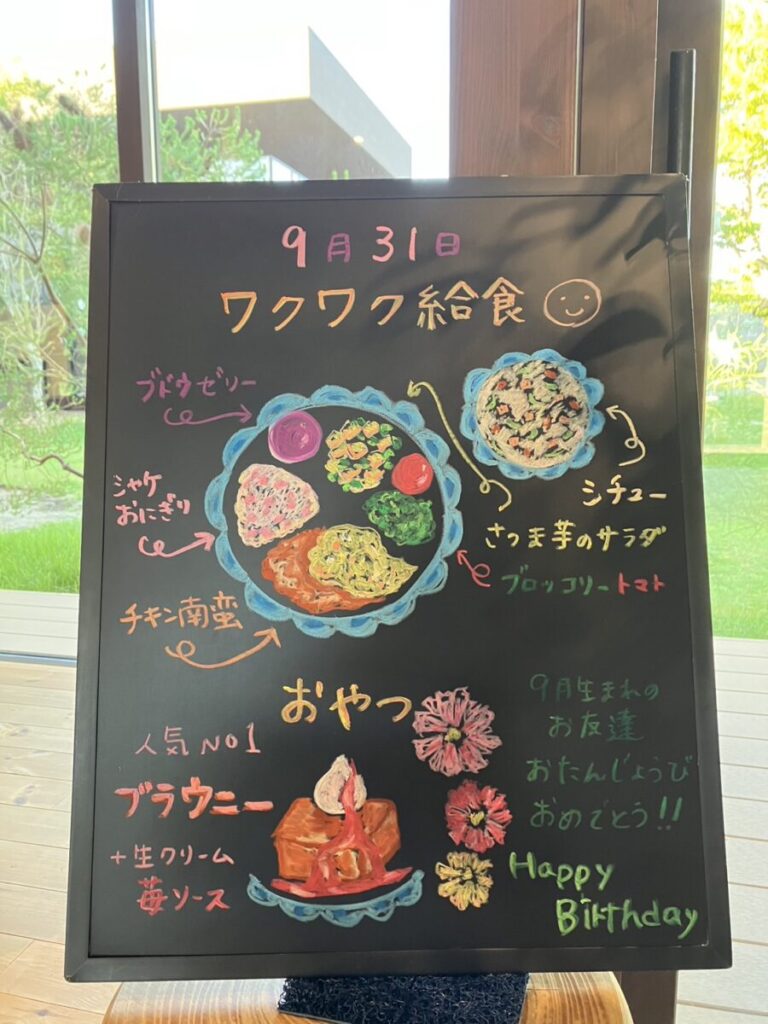 9月31日
ワクワク給食
ブドウゼリー
シャケ
おにぎり
チキン南蛮
シチュー
さつま芋のサラダ
ブロッコリートマト
おやつ
人気 NO1
ブラウニー
+生クリーム
苺ソース
9月生まれの
お友達
おたんじょうび
おめでとう!!
Happy
Birthday